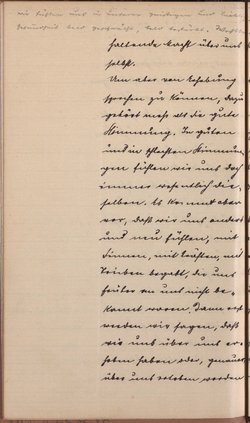 wir fühlen uns in unserer geistigen und
haltende Macht über uns
selbst.
Um aber von Erhebung
sprechen zu können, dazu
gehört mehr als die gute
Stimmung. In guten
und in schlechten Stimmun-
gen fühlen wir uns doch
immer wesentlich die-
selben. Es kommt aber
vor, daß wir uns anders
und neu fühlen, mit
Sinnen, mit Kräften, mit
Trieben begabt, die uns
früher an uns nicht be-
kannt waren. Dann erst
werden wir sagen, daß
wir uns über uns er-
hoben haben oder, genauer,
über uns erhoben worden